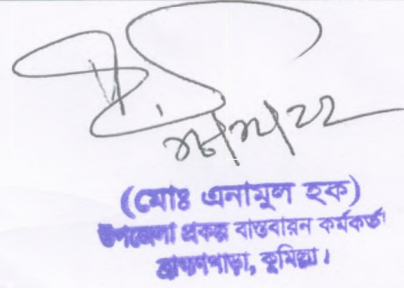 (মোঃ এনামুল হক)
উপজেলা প্রকল্প বাস্তবায়ন কর্মকর্তা
ব্রাহ্মণপাড়া, কুমিল্লা।